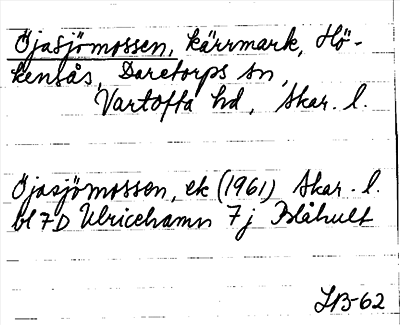 Öjasjömossen, kärrmark, Hö-
kensås, Daretorps sn,
Vartofta hd, Skar. l.
Öjasjömossen, ek (1961) Skar. l.
bl 7D Ulricehamn 7j Blåhult
LB-62